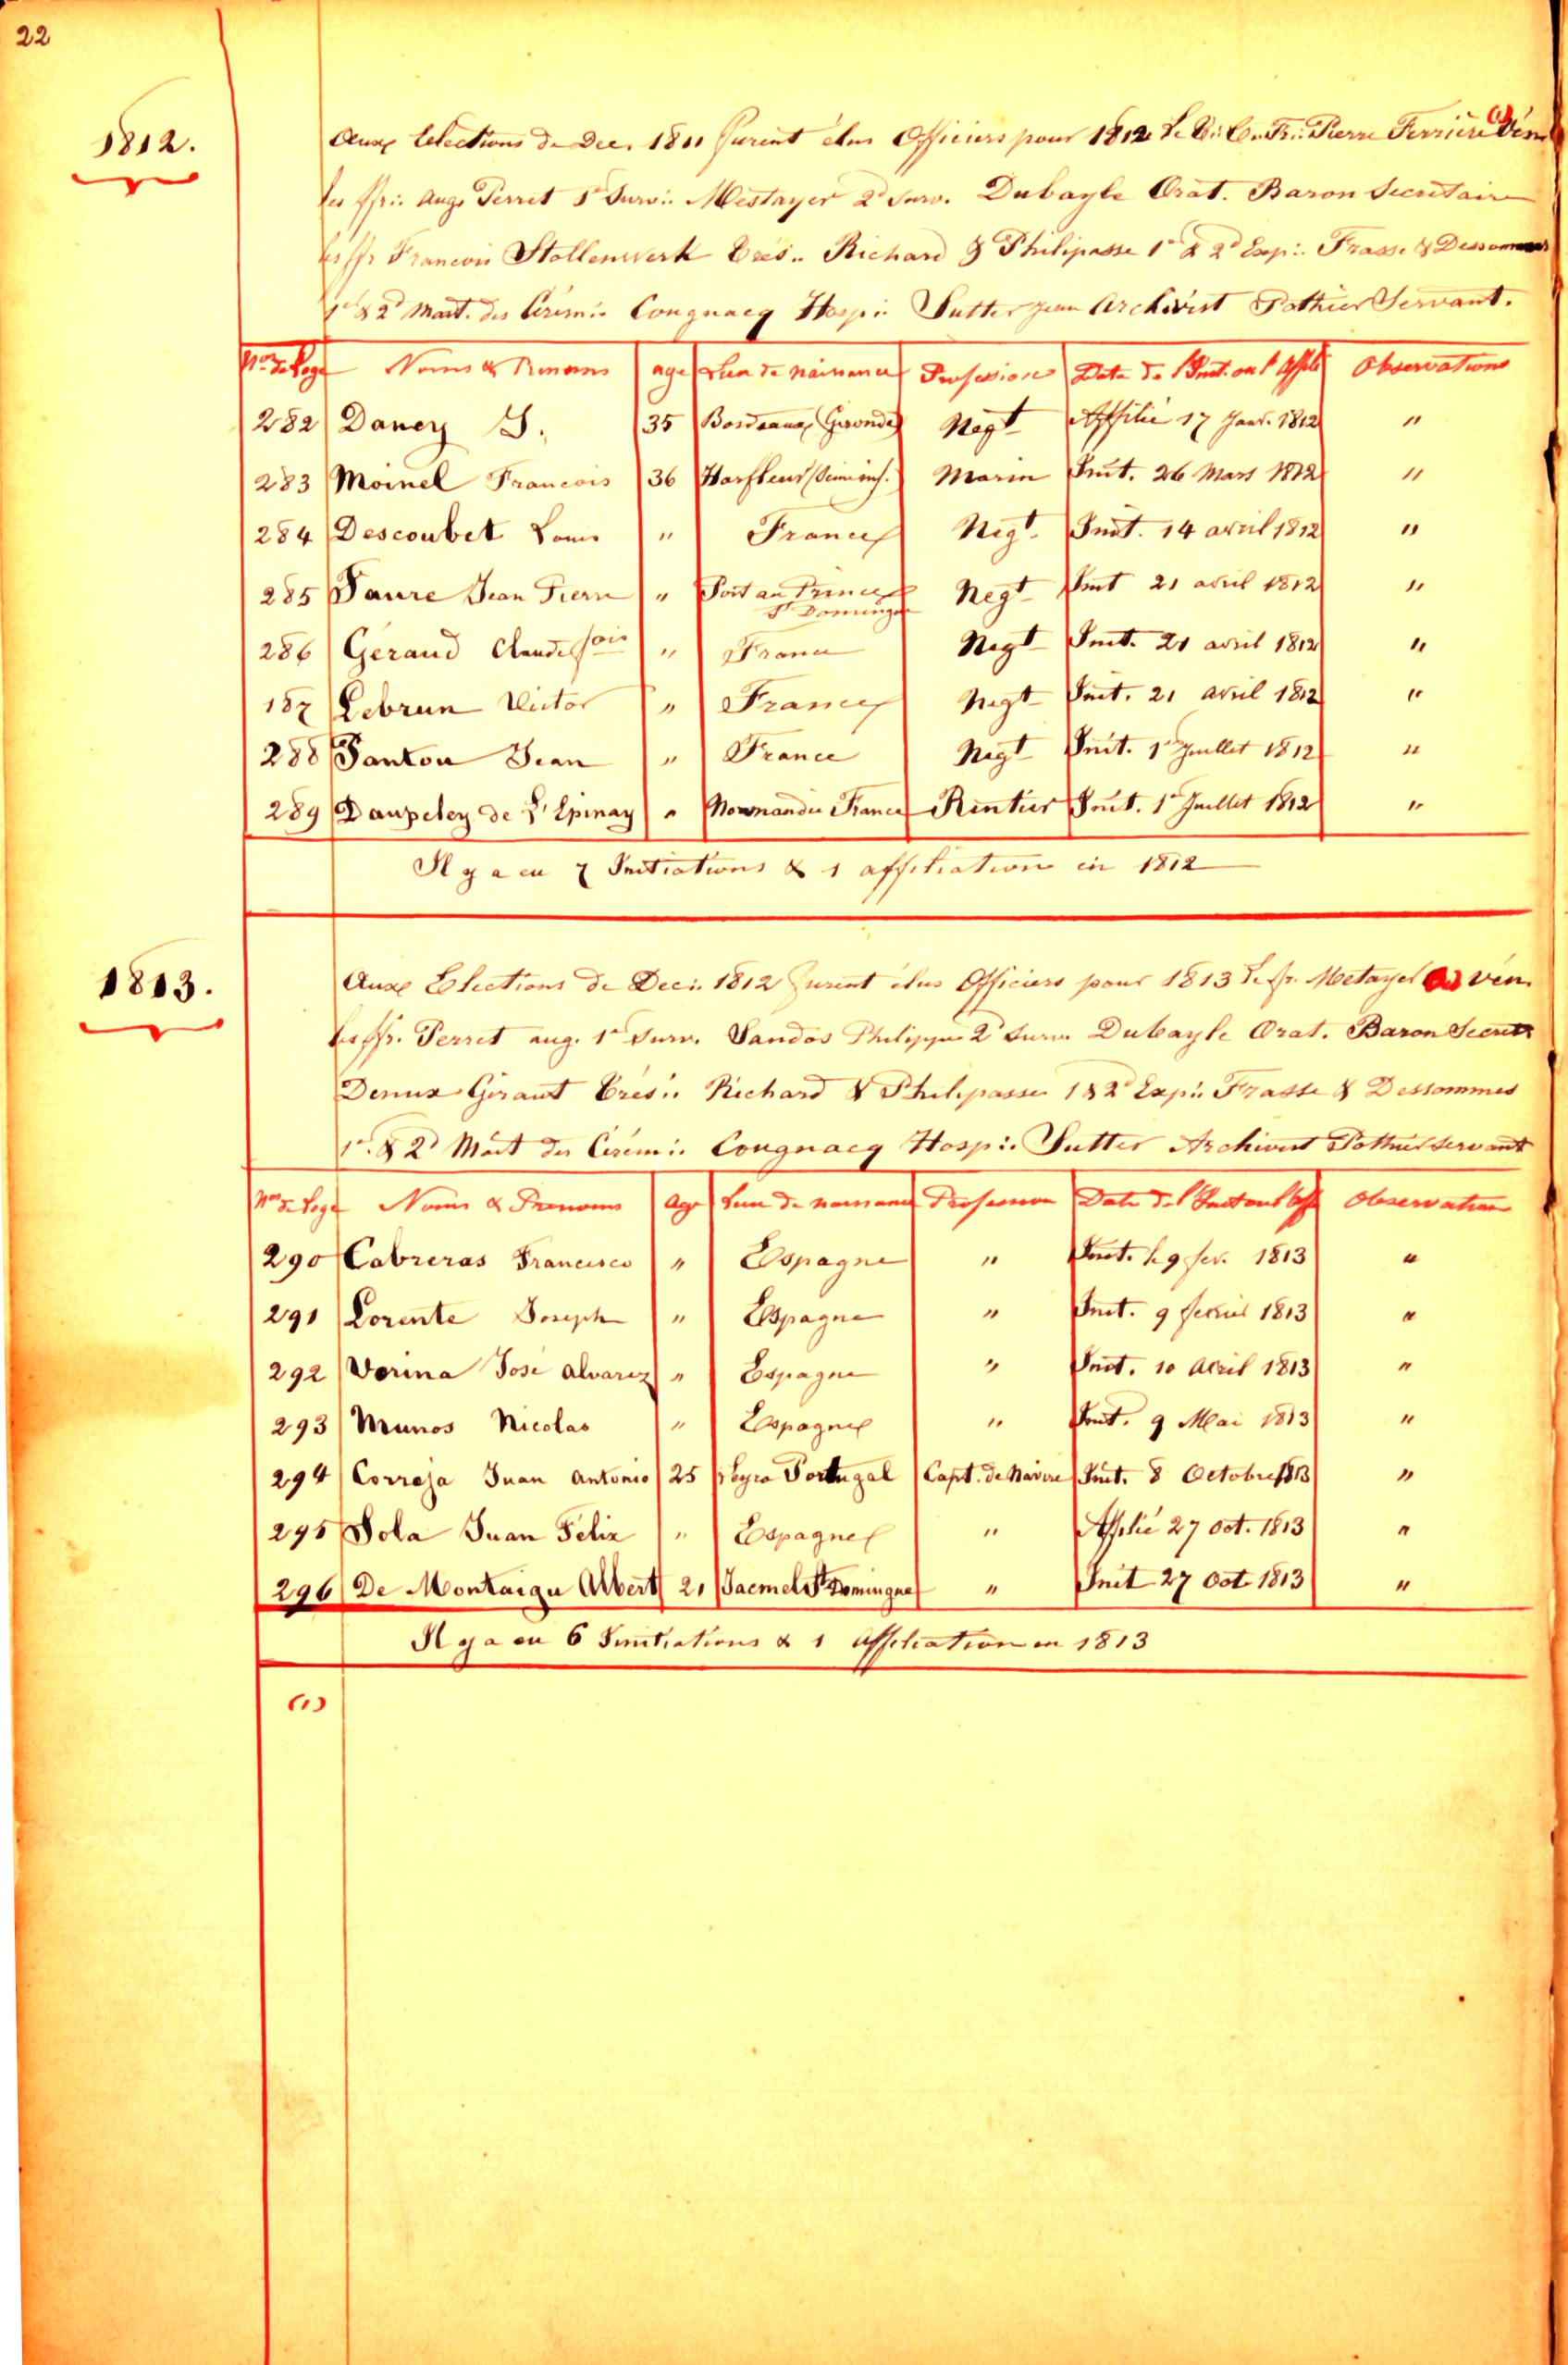 22
1812.
Aux Elections de Dec. 1811 furent élus Officiers pour 1812 Le V∴ C∴ Fr∴ Pierre Ferrière (1) Vén
les ffr∴ Aug. Perret 1r Surv∴ Mestayer 2d Surv. Dubayle Orat. Baron Secretaire
les ffr Francois Stollenwerk Trés∴ Richard & Philipasse 1r & 2d Exp∴ Frasse & Dessommes
1r & 2d Mait. des Cérém∴ Cougnacq Hospi∴ Sutter Jean Archivist Pothier Servant.
Nos de Loge Noms & Prenoms age Lieu de naissance Professions Date de l'Init. ou l'Affil Observations
282 Daney J. 35 Bordeaux (Gironde) Negt Affilié 17 Janv. 1812 "
283 Moinel Francois 36 Harfleur (Seine inf.) Marin Init. 26 Mars 1812 "
284 Descoubet Louis " France Negt. Init. 14 avril 1812 "
285 Faure Jean Pierre " Port au Prince St Domingue Negt Init 21 avril 1812 "
286 Géraud Claude fois " France Negt Init. 21 avril 1812 "
187 Lebrun Victor " France Negt Init. 21 avril 1812 "
288 Santon Jean " France Negt Init. 1r Juillet 1812 "
289 Daupeley de L'Epinay " Normandie France Rentier Init. 1r Juillet 1812 "
Il y a eu 7 Initiations & 1 affiliation in 1812
1813.
Aux Elections de Dec∴ 1812 furent élus Officiers pour 1813 Le fr. Metayer Vén.
les ffr. Perret aug. 1r Surv. Sandos Philippe 2d Surv. Dubayle Orat. Baron Secret
Denux Girant Trés∴ Richard & Philipasse 1 & 2d Exp∴ Frasse & Dessommes
1r. & 2d Mait des Cérém∴ Cougnacq Hosp∴ Sutter Archivist Pothier Servant
Nos de Loge Noms & Prenoms age Lieu de naissance Profession Date de l'Init ou l'Aff Observation
290 Cabreras Francisco " Espagne " Init. le 9 fev. 1813 "
291 Lorente Joseph " Espagne " Init. 9 fevrier 1813 "
292 Verina José alvarez " Espagne " Init. 10 Avril 1813 "
293 Munos Nicolas " Espagne " Init. 9 Mai 1813 "
294 Correja Juan Antonio 25 Portugal Capt. de Navire Init. 8 Octobre 1813 "
295 Sola Juan Felix " Espagne " Affilié 27 Oct. 1813 "
296 De Montaigu Albert 21 Jacmel St Domingue " Init 27 Oct 1813 "
Il y a eu 6 Initiations & 1 Affiliation en 1813
(1)